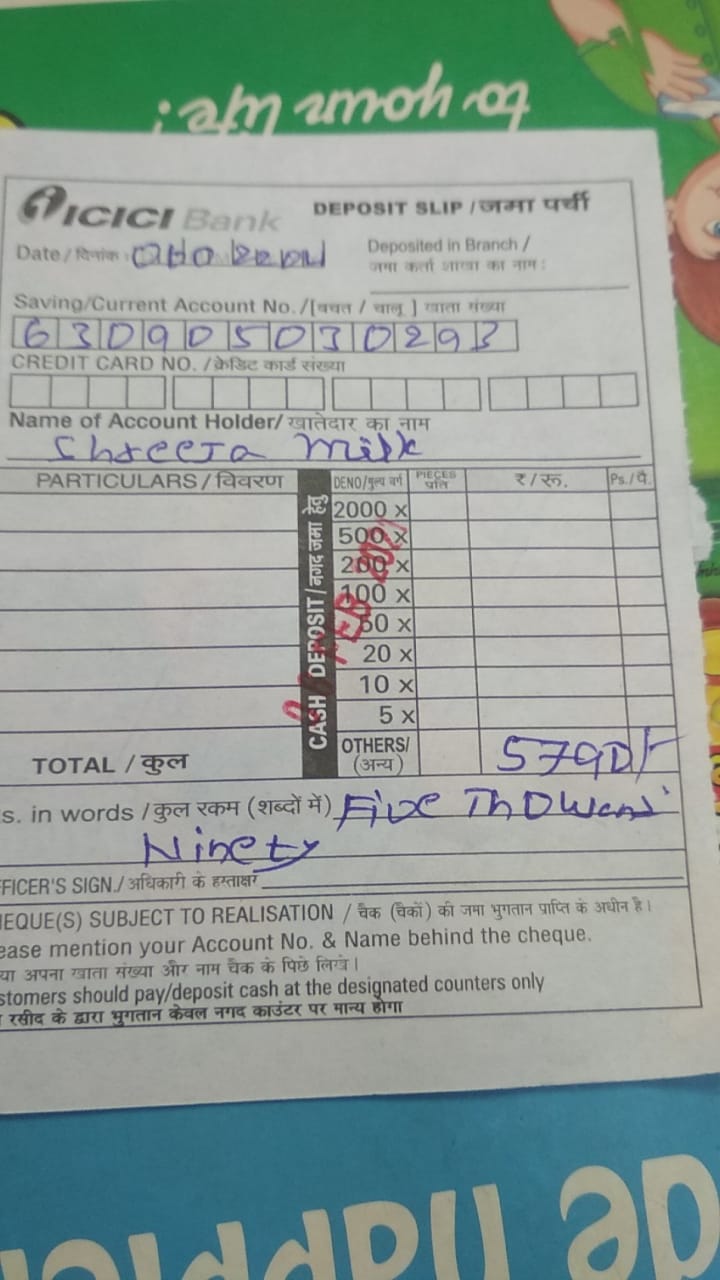 to your life!
ICICI Bank
DEPOSIT SLIP / जमा पर्ची
Date / दिनांक :
Deposited in Branch /
जमा कर्ता शाखा का नाम :
Saving/Current Account No./[बचत / चालू ] खाता संख्या
630905030293
CREDIT CARD NO. /क्रेडिट कार्ड संख्या
Name of Account Holder/ खातेदार का नाम
Shreeja Milk
PARTICULARS / विवरण
CASH DEPOSIT/ नगद जमा हेतु
DENO/मूल्य वर्ग PIECES प्रति ₹/रू. Ps./पै.
2000 x
500 x
200 x
100 x
50 x
20 x
10 x
5 x
FEB 2021
TOTAL / कुल OTHERS/ (अन्य) 5790/-
s. in words / कुल रकम (शब्दों में) Five Thowand
Ninety
FICER'S SIGN./ अधिकारी के हस्ताक्षर
EQUE(S) SUBJECT TO REALISATION / चैक (चैकों) की जमा भुगतान प्राप्ति के अधीन है।
ease mention your Account No. & Name behind the cheque.
या अपना खाता संख्या और नाम चैक के पिछे लिखें।
stomers should pay/deposit cash at the designated counters only
रसीद के द्वारा भुगतान केवल नगद काउंटर पर मान्य होगा